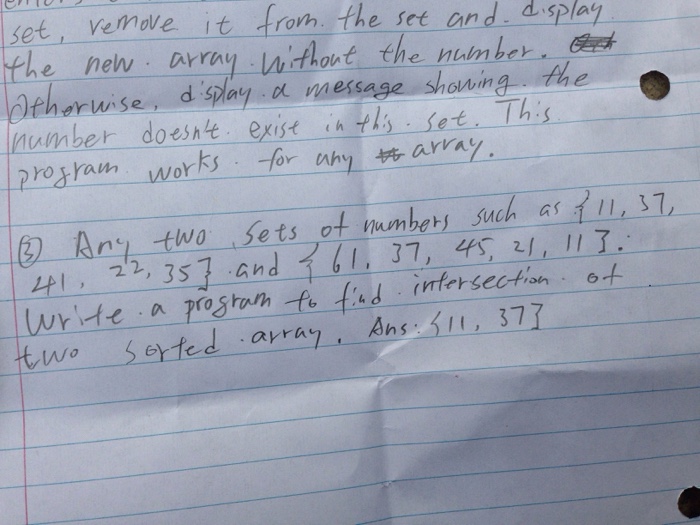 set, remove it from the set and display
the new array without the number.
Otherwise, display a message showing the
number doesn't exist in this set. This
program works for any array.
③ Any two sets of numbers such as {11, 37,
41, 22, 35} and {61, 37, 45, 21, 11}.
Write a program to find intersection of
two sorted array. Ans: {11, 37}